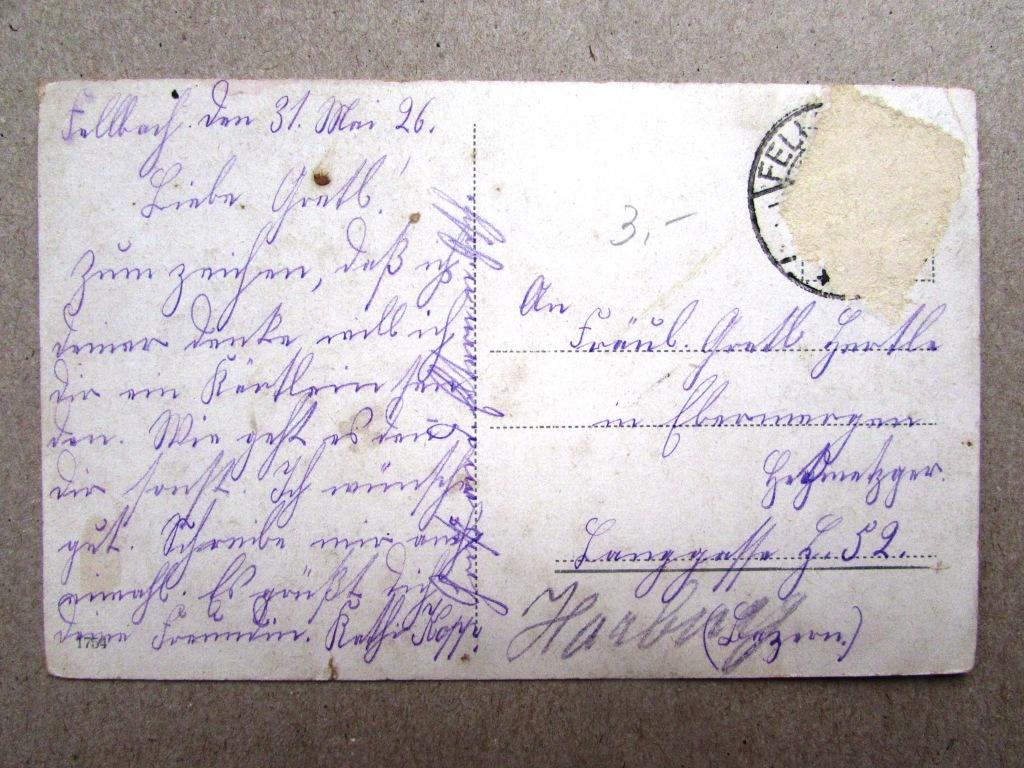 Fellbach. den 31. Mai 26.
Liebe Gretl!
Zum zeichen, daß ich
deiner denke will ich
dir ein Kärtlein sen
den. Wie geht es den
dir sonst. Ich wünsche
gut. Schreibe mir auch
einmahl. Es grüßt dich
deine Freundin. Kathi Kopp.
FELL
3,-
An
Fräul. Gretl Hertle
in Ebermergen
Langgasse H. 52.
Harburg
(Bayern.)
1754